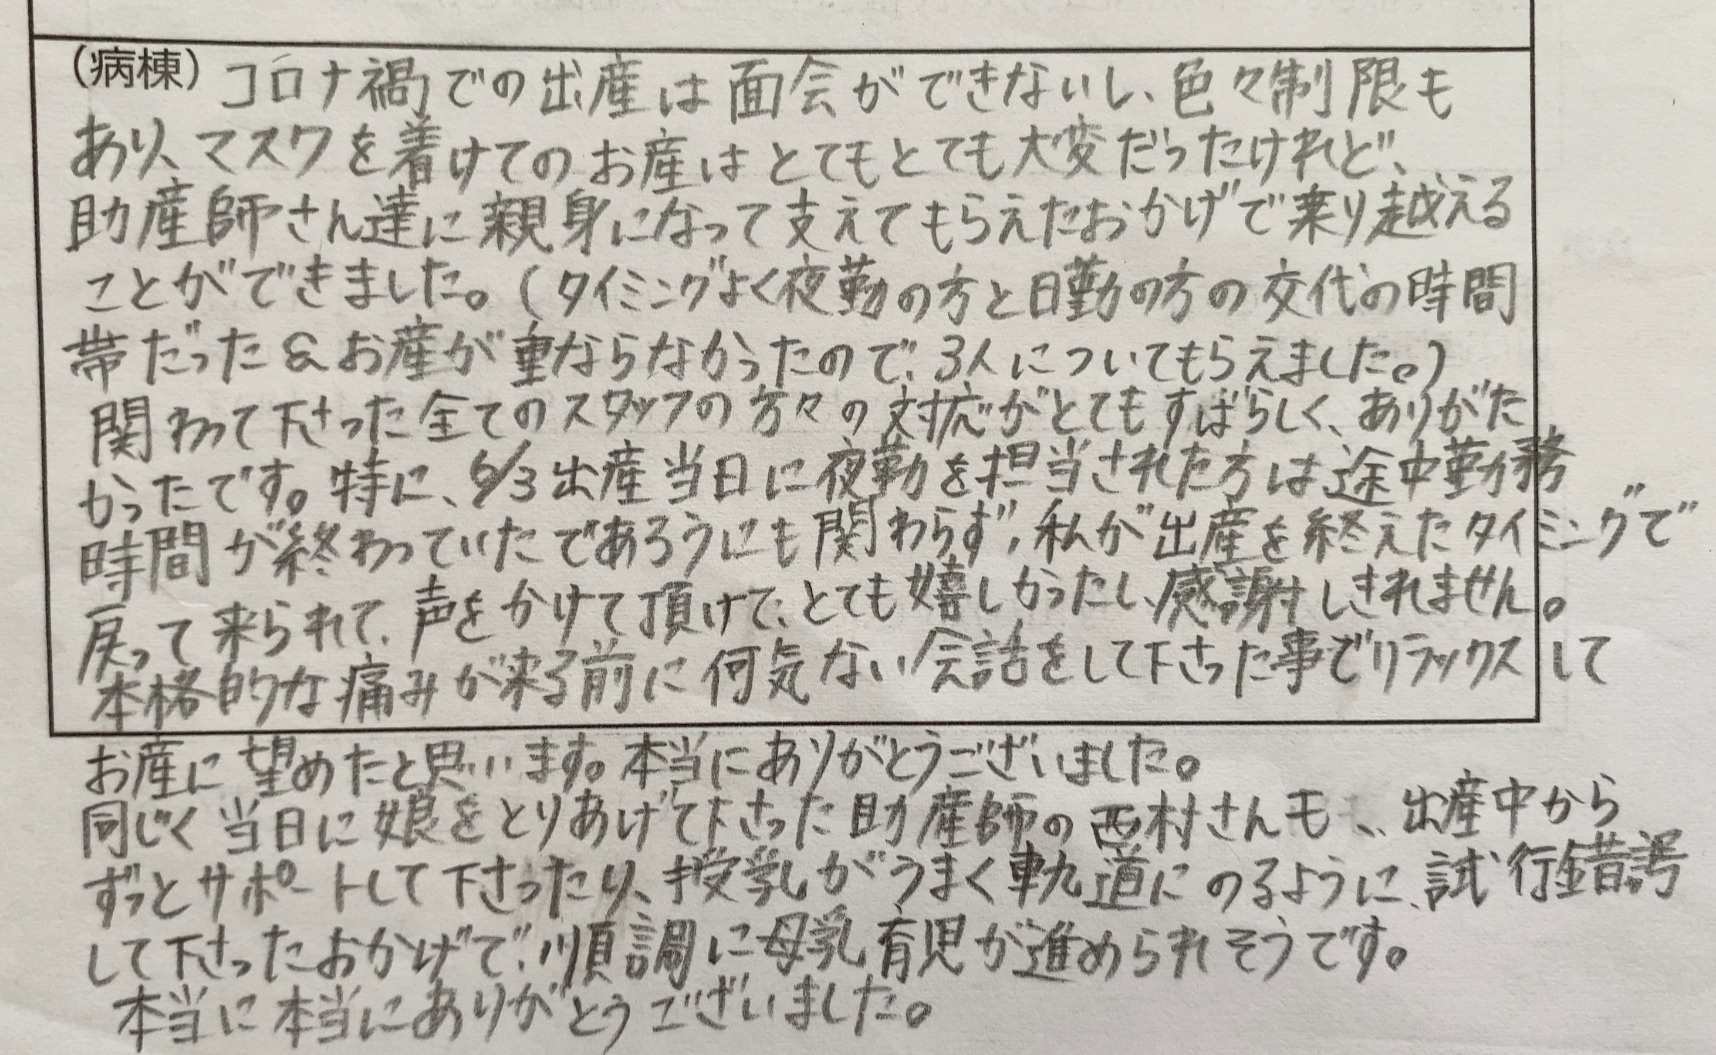 (病棟) コロナ禍での出産は面会ができないし、色々制限も
あり、マスクを着けてのお産はとてもとても大変だったけれど、
助産師さん達に親身になって支えてもらえたおかげで乗り越える
ことができました。(タイミングよく夜勤の方と日勤の方の交代の時間
帯だった&お産が重ならなかったので、3人についてもらえました。)
関わって下さった全てのスタッフの方々の対応がとてもすばらしく、ありがた
かったです。特に、5/3出産当日に夜勤を担当された方は途中勤務
時間が終わっていたであろうにも関わらず、私が出産を終えたタイミングで
戻って来られて、声をかけて頂けて、とても嬉しかったし、感謝しきれません。
本格的な痛みが来る前に何気ない会話をして下さった事でリラックスして
お産に望めたと思います。本当にありがとうございました。
同じく当日に娘をとりあげて下さった助産師の西村さんも、、出産中から
ずっとサポートして下さったり、授乳がうまく軌道にのるように、試行錯誤
して下さったおかげで、順調に母乳育児が進められそうです。
本当に本当にありがとうございました。